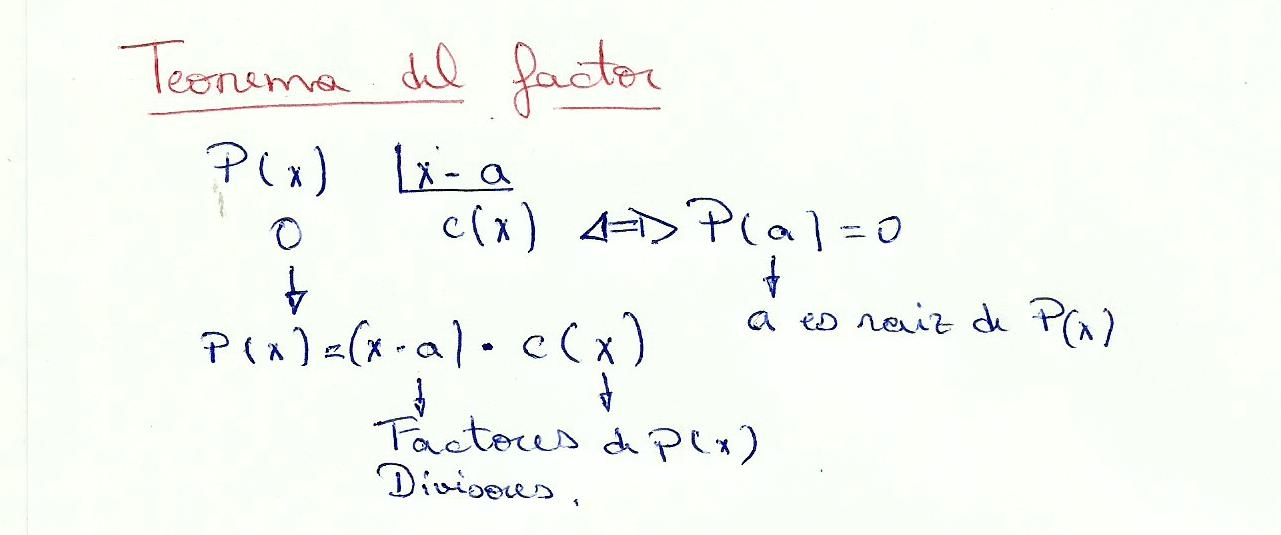 Teorema del factor
P(x) |x - a
0 c(x) <=> P(a) = 0
↓ ↓
a es raiz de P(x)
P(x) = (x - a) · c(x)
↓ ↓
Factores de P(x)
Divisores.